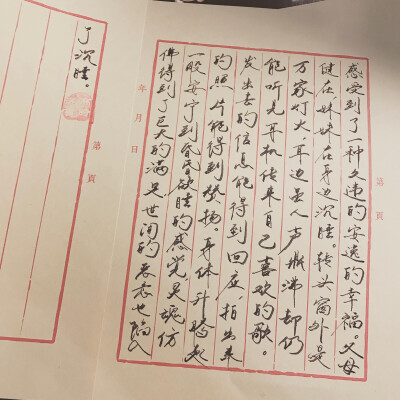 感受到了一种久违的安逸的幸福。父母
健在妹妹在身边沉睡。转头窗外是
万家灯火,耳边是人声鼎沸却仍
能听见耳机传来自己喜欢的歌。
发出去的信息能得到回应,拍出来
的照片能得到赞扬。身体升腾起
一股安宁到昏昏欲睡的感觉,灵魂仿
佛得到了巨大的满足世间的恶意也陷入
年 月 日
第 頁
了沉睡。
第 頁